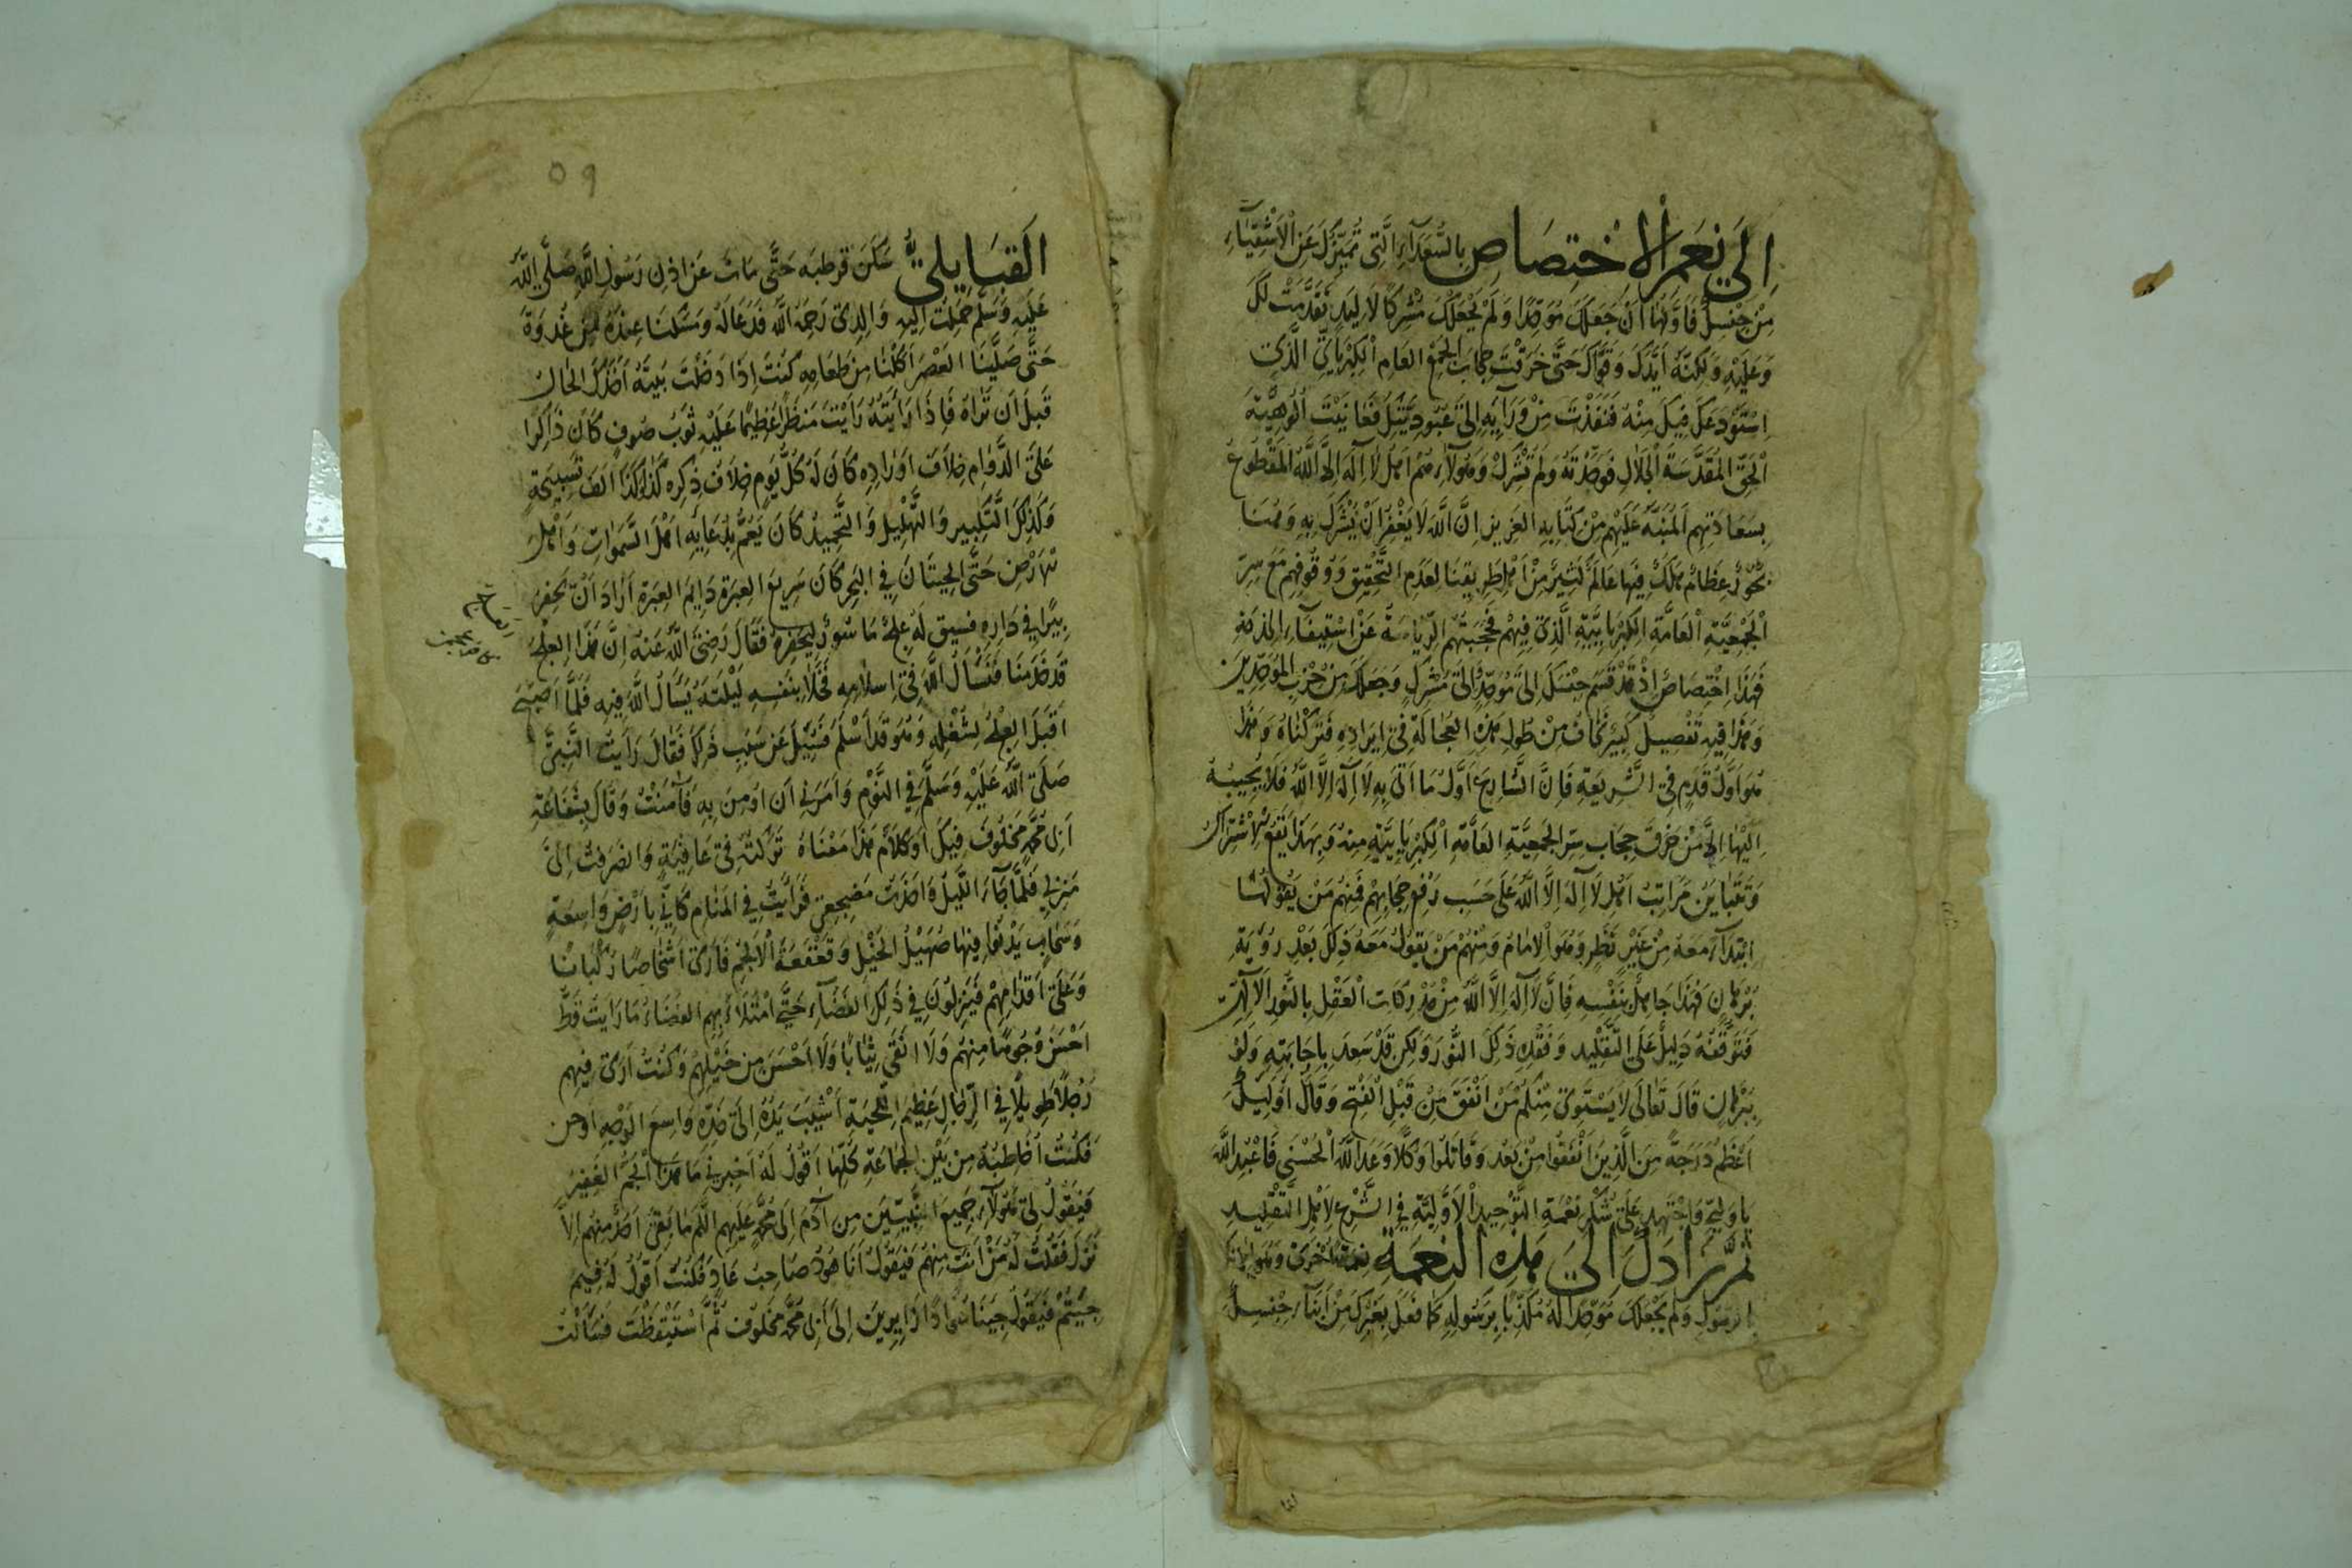 الى نعم الاختصاص بِالسُّعَدَآءِ الَّتِى تُمَيِّزُكَ عَنِ الْاَشْقِيَآءِ
مِنْ جِنْسِكَ فَاَوَّلُهَا اَنْ جَعَلَكَ مُوَحِّدًا وَلَمْ يَجْعَلْكَ مُشْرِكًا لَا لِيَدٍ تَقَدَّمَتْ لَكَ
وَعَلَيْهِ وَلٰكِنَّهُ اَيَّدَكَ وَقَوَّاكَ حَتَّى خَرَقْتَ حِجَابَ الْجَمْعِ العَامِ الْكِبْرِيَائِىِّ الَّذِى
اِسْتَوْدَعَكَ فِيكَ مِنْهُ فَنَفَذْتَ مِنْ وَرَآئِهِ اِلَى عُبُودِيَّتِكَ فَعَايَنْتَ اُلُوهِيَّةَ
الْحَقِّ المُقَدَّسَةَ الْجَلَالِ فَوَحَّدْتَهُ وَلَمْ تُشْرِكْ وَهٰؤُلَآءِ هُمْ اَهْلُ لَا اِلٰهَ اِلَّا اللّٰهُ المَقْطُوعُ
بِسَعَادَتِهِمِ المُنَبَّهُ عَلَيْهِمْ مِنْ كِتَابِهِ العَزِيزِ اِنَّ اللّٰهَ لَا يَغْفِرُ اَنْ يُشْرَكَ بِهِ وَهُنَا
بُحُورٌ عِظَامٌ هَلَكَ فِيهَا عَالَمٌ كَثِيرٌ مِنْ اَهْلِ طَرِيقِنَا لِعَدَمِ التَّحْقِيقِ وَوُقُوفِهِمْ مَعَ سِرِّ
الْجَمْعِيَّةِ الْعَامَّةِ الكِبْرِيَائِيَّةِ الَّذِى فِيهِمْ فَحَجَبَتْهُمُ الرِّيَاسَةُ عَنْ اسْتِيفَآءِ
فَهٰذَا اِخْتِصَاصٌ اِذْ قَدْ قَسَمَ جِنْسَكَ اِلَى مُوَحِّدٍ اِلَى مُشْرِكٍ وَجَعَلَكَ مِنْ حِزْبِ المُوَحِّدِينَ
وَهٰذَا فِيهِ تَفْصِيلٌ كَبِيرٌ نَخَافُ مِنْ طُولِ هٰذِهِ العُجَالَةِ فِى اِيرَادِهِ فَتَرَكْنَاهُ وَهٰذَا
هُوَ اَوَّلُ قَدَمٍ فِى الشَّرِيعَةِ فَاِنَّ الشَّارِعَ اَوَّلُ مَا اَتَى بِهِ لَا اِلٰهَ اِلَّا اللّٰهُ فَلَا يُجِيبُهُ
اِلَيْهَا اِلَّا مَنْ خَرَقَ حِجَابَ سِرِّ الجَمْعِيَّةِ العَامَّةِ الْكِبْرِيَائِيَّةِ مِنْهُ وَبِهٰذَا يَقَعُ الْاِشْتِرَاكُ
وَتَتَبَايَنُ مَرَاتِبُ اَهْلِ لَا اِلٰهَ اِلَّا اللّٰهُ عَلَى حَسَبِ رَفْعِ حِجَابِهِمْ فَمِنْهُمْ مَنْ يَقُولُهَا
ابْتِدَآءً مَعَهُ مِنْ غَيْرِ نَظَرٍ وَهُوَ الْاِمَامُ وَمِنْهُمْ مَنْ يَقُولُ مَعَهُ ذٰلِكَ بَعْدِ رُؤْيَةِ
بُرْهَانٍ فَهٰذَا جَاهِلٌ بِنَفْسِهِ فَاِنَّ لَا اِلٰهَ اِلَّا اللّٰهُ مِنْ مُدْرَكَاتِ الْعَقْلِ بِالنُّورِ الْاِلٰهِىِّ
فَتَوَقُّفُهُ دَلِيلٌ عَلَى التَّقْلِيدِ وَفَقْدِ ذٰلِكَ النُّورِ وَلٰكِنْ قَدْ سَعِدَ بِاِجَابَتِهِ وَلَوْ
بِبُرْهَانٍ قَالَ تَعَالَى لَا يَسْتَوِى مِنْكُمْ مَنْ اَنْفَقَ مِنْ قَبْلِ الْفَتْحِ وَقَاتَلَ اُولٰئِكَ
اَعْظَمُ دَرَجَةً مِنَ الَّذِينَ اَنْفَقُوا مِنْ بَعْدُ وَقَاتَلُوا وَكُلًّا وَعَدَ اللّٰهُ الْحُسْنَى فَاعْبُدِ اللّٰهَ
يَا وَلِيِّى وَاجْتَهِدْ عَلَى شُكْرِ نِعْمَةِ التَّوْحِيدِ الْاَوَّلِيَّةِ فِى الشَّرْعِ لِاَهْلِ التَّقْلِيدِ
ثُمَّ زَادَكَ اِلَى هٰذِهِ النِّعْمَةِ نِعْمَةً اُخْرَى وَهُوَ
وَلَمْ يَجْعَلْكَ مُوَحِّدًا لَهُ مُكَذِّبًا بِرَسُولِهِ كَمَا فَعَلَ بِغَيْرِكَ مِنْ اَبْنَآءِ جِنْسِكَ
٥٩
القَبَايِلىُّ سَكَنَ قرطبه حَتَّى مَاتَ عَنْ اذن رَسُولِ اللّٰهِ صَلَّى اللّٰهُ
عَلَيْهِ وَسَلَّمَ حَمَلْتُ اِلَيْهِ وَالِدِى رَحِمَهُ اللّٰهُ فَدَعَا لَهُ وَمَسَكَنَا عِنْدَهُ مِنْ غُدْوَةٍ
حَتَّى صَلَّيْنَا العَصْرَ اَكَلْنَا مِنْ طَعَامِهِ كُنْتَ اِذَا دَخَلْتَ بَيْتَهُ اَخَذَكَ الحَالُ
قَبْلَ اَنْ تَرَاهُ فَاِذَا رَاَيْتَهُ رَاَيْتَ مَنْظَرًا عَظِيمًا عَلَيْهِ ثَوْبُ صُوفٍ كَانَ ذَاكِرًا
عَلَى الدَّوَامِ خِلَافَ اَوْرَادِهِ كَانَ لَهُ كُلَّ يَوْمٍ خِلَافَ ذِكْرِهِ كَذَا وَكَذَا اَلْفَ تَسْبِيحَةٍ
وَكَذٰلِكَ التَّكْبِيرِ وَالتَّهْلِيلِ وَالتَّحْمِيدِ كَانَ يَعُمُّ بِدُعَائِهِ اَهْلَ السَّمٰوَاتِ وَاَهْلَ
الْاَرْضِ حَتَّى الحِيتَانَ فِى البَحْرِ كَانَ سَرِيعَ العِبْرَةِ دَايِمَ العِبْرَةِ اَرَادَ اَنْ يَحْفِرَ
بِيرًا فِى دَارِهِ فَسِيقَ لَهُ عِلْجٌ مَاسُورٌ لِيَحْفِرَهُ فَقَالَ رَضِىَ اللّٰهُ عَنْهُ اِنَّ هٰذَا العِلْجَ
قَدْ خَدَمَنَا فَنَسْاَلُ اللّٰهَ فِى اِسْلَامِهِ فَخَلَا بِنَفْسِهِ لَيْلَتَهُ يَسْاَلُ اللّٰهَ فِيهِ فَلَمَّا اَصْبَحَ
اَقْبَلَ العِلْجُ لِشُغْلِهِ وَهُوَ قَدْ اَسْلَمَ فَسُئِلَ عَنْ سَبَبِ ذٰلِكَ فَقَالَ رَاَيْتُ النَّبِىَّ
صَلَّى اللّٰهُ عَلَيْهِ وَسَلَّمَ فِى النَّوْمِ وَاَمَرَنِى اَنْ اُومِنَ بِهِ فَآمَنْتُ وَقَالَ بِشَفَاعَةِ
اَبِى مُحَمَّدٍ مَخْلُوفٍ فِيكَ اَوْ كَلَامٌ هٰذَا مَعْنَاهُ تَرَكْتُهُ فِى عَافِيَةٍ وَانْصَرَفْتُ اِلَى
مَنْزِلِى فَلَمَّا جَآءَ اللَّيْلُ وَاَخَذْتُ مَضْجَعِى فَرَاَيْتُ فِى المَنَامِ كَاَنِّى بِاَرْضٍ وَاسِعَةٍ
وَسَحَابٍ يَدْنُوا فِيهَا صَهِيلُ الخَيْلِ وَقَعْقَعَةُ الْاَلْجُمِ فَاَرَى اَشْخَاصًا رُكْبَانًا
وَعَلَى اَقْدَامِهِمْ فَيَنْزِلُونَ فِى ذٰلِكَ الفَضَآءِ حَتَّى امْتَلَاَ بِهِمِ الفَضَاءُ مَا رَاَيْتُ قَطُّ
اَحْسَنَ وُجُوهًا مِنْهُمْ وَلَا اَنْقَى ثِيَابًا وَلَا اَحْسَنَ مِنْ خَيْلِهِمْ وَكُنْتُ اَرَى فِيهِمْ
رَجُلًا طَوِيلًا فِى الرِّجَالِ عَظِيمَ اللِّحْيَةِ اَشْيَبَ يَدُهُ اِلَى خَدِّهِ وَاسِعَ الوَجْهِ
فَكُنْتُ اُخَاطِبُهُ مِنْ بَيْنِ الجَمَاعَةِ كُلِّهَا اَقُولُ لَهُ اَخْبِرْنِى مَا هٰذَا الْجَمُّ الغَفِيرُ
فَيَقُولُ لِى هٰؤُلَآءِ جَمِيعُ النَّبِيِّينَ مِنْ آدَمَ اِلَى مُحَمَّدٍ عَلَيْهِمُ السَّلَمُ مَا بَقِىَ اَحَدٌ مِنْهُمْ اِلَّا
نَزَلَ فَقُلْتُ لَهُ مَنْ اَنْتَ مِنْهُمْ فَيَقُولُ اَنَا هُودٌ صَاحِبُ عَادٍ فَكُنْتُ اَقُولُ لَهُ فِيمَ
جِيتُمْ فَيَقُولُ جِينَا عُوَّادًا زَايِرِينَ اِلَى اَبِى مُحَمَّدٍ مَخْلُوفٍ ثُمَّ اسْتَيْقَظْتُ فَسَاَلْتُ